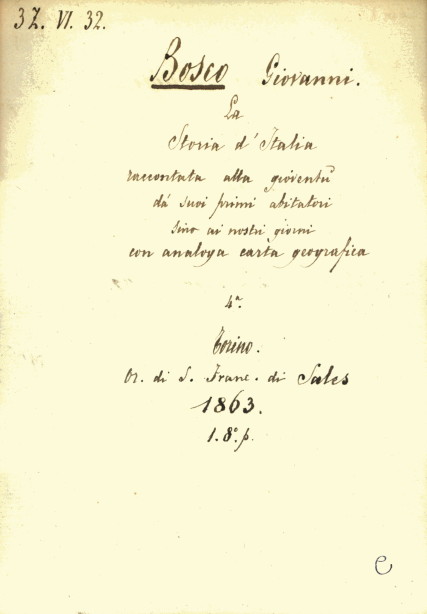 3Z. VI. 32.
Bosco Giovanni.
La
Storia d'Italia
raccontata alla gioventù
da' suoi primi abitatori
sino ai nostri giorni
con analoga carta geografica
4ª.
Torino.
Or. di S. Franc. di Sales
1863.
1. 8º. p.
e